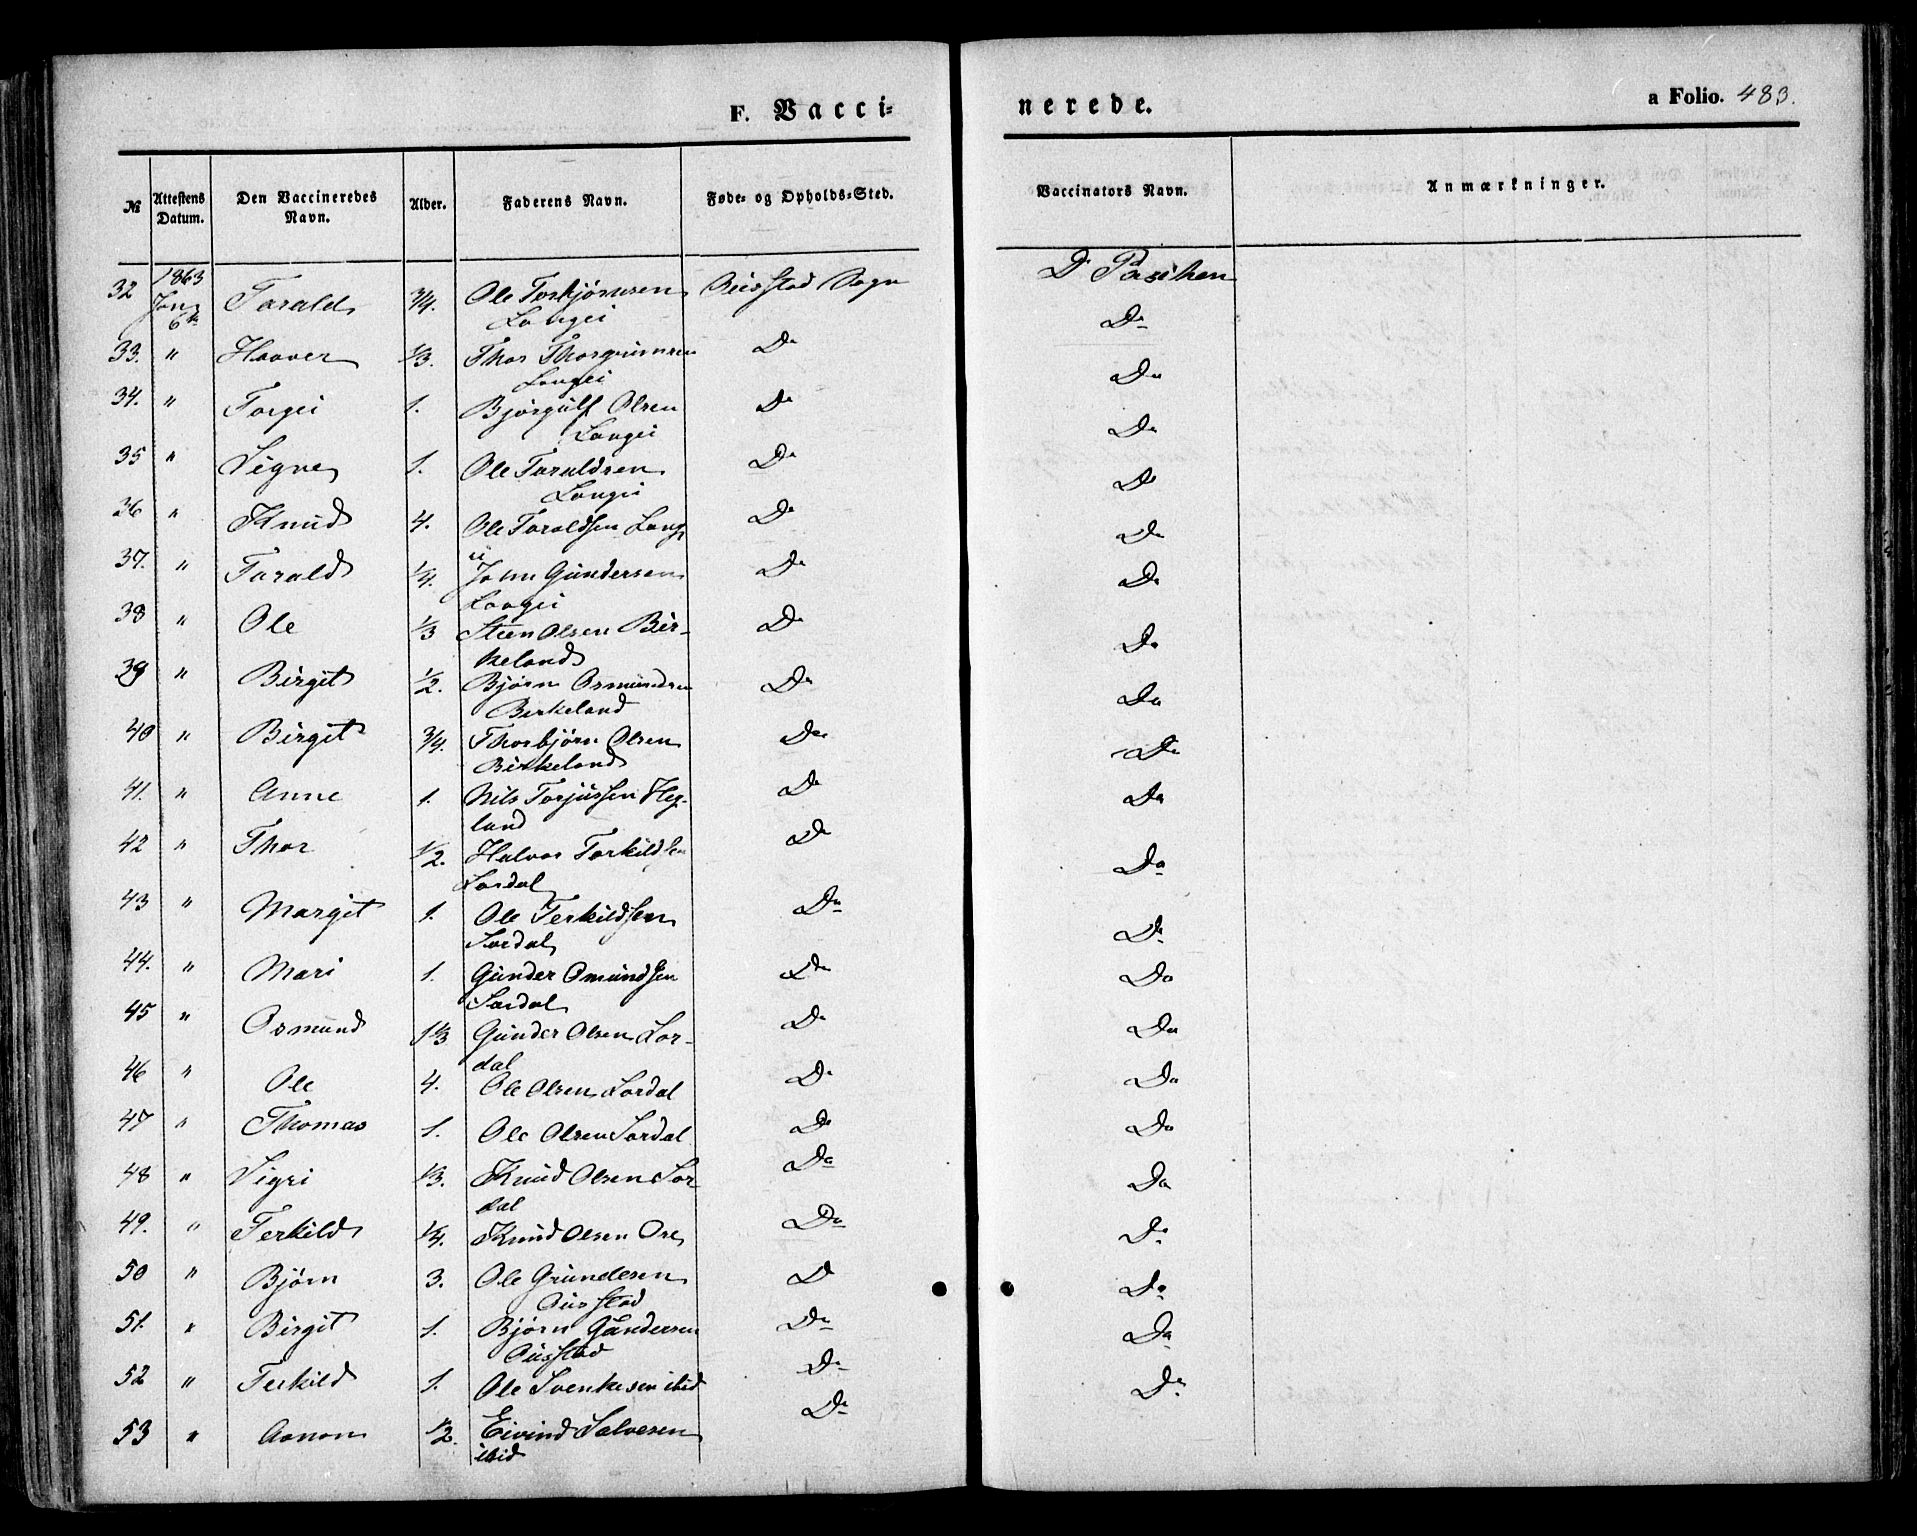 F. Vacci-
nerede.
a Folio. 483.
№ Attestens Datum. Den Vaccineredes Navn. Alder. Faderens Navn. Føde- og Opholds-Sted. Vaccinators Navn. Anmærkninger.
32 1863 Jan 6te Tarald 3/4. Ole Torkjørnsen Sogn D
Langei
33. " Haaver 1/3. Thor Thorgrimsen Do Do
Langei
34. " Torgei 1. Bjørgulf Olsen Do Do
Langei
35 " Signe 1. Ole Taraldsen Do Do
Langei
36 " Knud 4. Ole Taraldsen Lang Do Do
ei
37. " Tarald 1/4. John Gundersen Do Do
Langei
38 " Ole 1/3 Steen Olsen Bir- Do Do
keland
39 " Birgit 1/2. Bjørn Osmundsen Do Do
Birkeland
40 " Birgit 3/4. Thorbjørn Olsen Do Do
Birkeland
41. " Anne 1. Nils Torjussen Heg- Do Do
land
42 " Thor 1/2. Halvor Torkildsen Do Do
Lordal
43 " Margit 1. Ole Terkildsen Do Do
Lordal
44. " Mari 1. Gunder Omundsen Do Do
Lordal
45 " Osmund 1 1/3 Gunder Olsen Lor- Do Do
dal
46 " Ole 4. Ole Olsen Lordal Do Do
47 " Thomas 1. Ole Olsen Lordal Do Do
48 " Sigri 1/3. Knud Olsen Lor- Do Do
dal
49. " Terkild 1/4. Knud Olsen Ore Do Do
50 " Bjørn 3. Ole Gundersen D Do
51. " Birgit 1. Bjørn Gundersen Do Do
52 " Terkild 1. Ole Svenkesen ibid Do Do
53 " Aanon 1/2. Eivind Salvesen Do
ibid